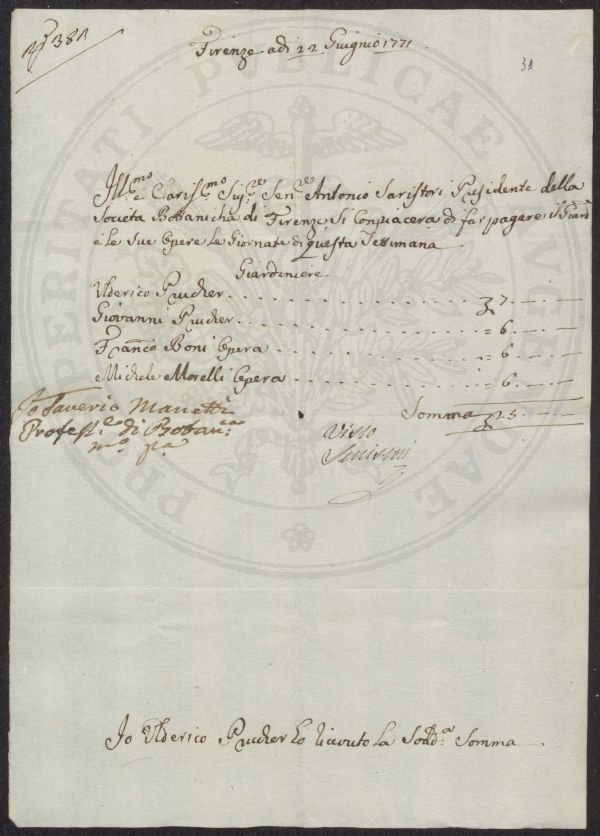 N° 381
Firenze adi 22 Giugnio 1771
31
Ill:mo e Clariss:mo Sig:re Sen:re Antonio Saristori Presidente della
Società Bottanicha di Firenze si Conpiacerà di far pagare il Giard
e le sue Opere le Giornate di questa Settimana
Giardiniere
Ulderico Prucher 7
Giovanni Prucher 6
Franco Boni Opera 6
Michele Morelli Opera 6
Somma 25
Io Saverio Manetti
Profess:e di Botan:ca
m:o p:a
Visto
Io Ulderico Prucher ho riceuto la Sodd:a Somma
PROSPERITATI PVBLICAE AVGENDAE